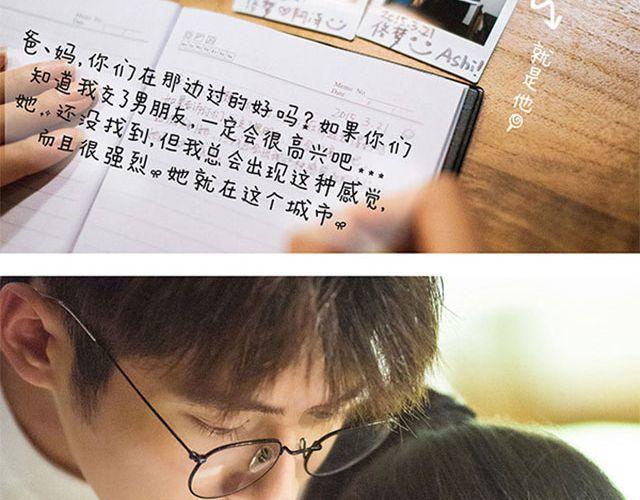 佟梦♡阿泽
2015.3.21
佟梦
Ashi!
就是他
Memo No.
Date
Memo No.
Date
2015.3.21
爸、妈，你们在那边过的好吗？如果你们
知道我交了男朋友，一定会很高兴吧...
她。。还没找到，但我总会出现这种感觉，
而且很强烈。她就在这个城市。